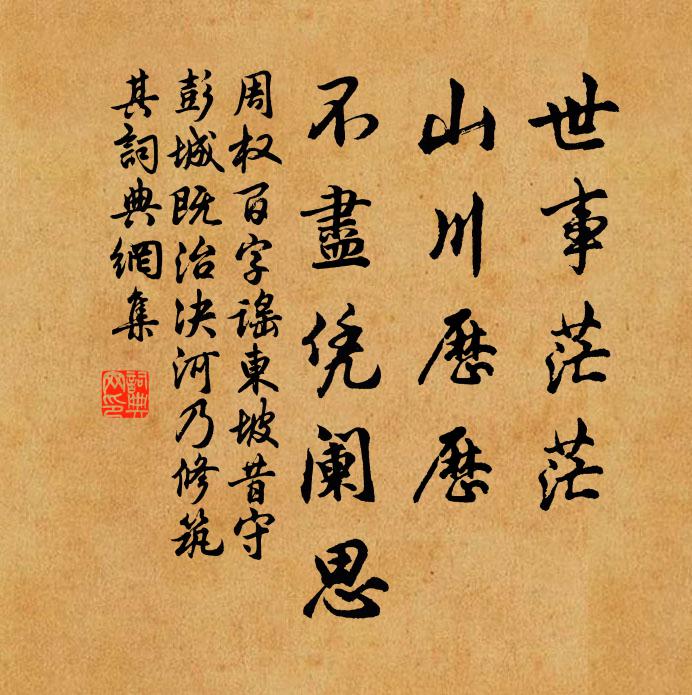 世事茫茫
山川歷歷
不盡凭阑思
周权百字謠東坡昔守
彭城既治決河乃修筑
其詞典網集
詞典網印